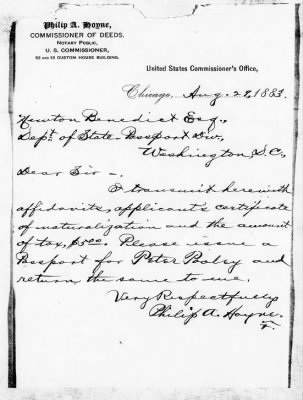 Philip A. Hoyne,
COMMISSIONER OF DEEDS.
NOTARY PUBLIC,
U. S. COMMISSIONER,
52 and 53 CUSTOM HOUSE BUILDING.
United States Commissioner's Office,
Chicago, Aug. 28, 1883.
Newton Benedict Esq.,
Dept. of State Passport Div,
Washington, D.C.,
Dear Sir –.
I transmit herewith
affidavits, applicant's certificate
of naturalization and the amount
of tax, $5.00. Please issue a
Passport for Peter and
return the same to me.
Very Respectfully
Philip A. Hoyne.